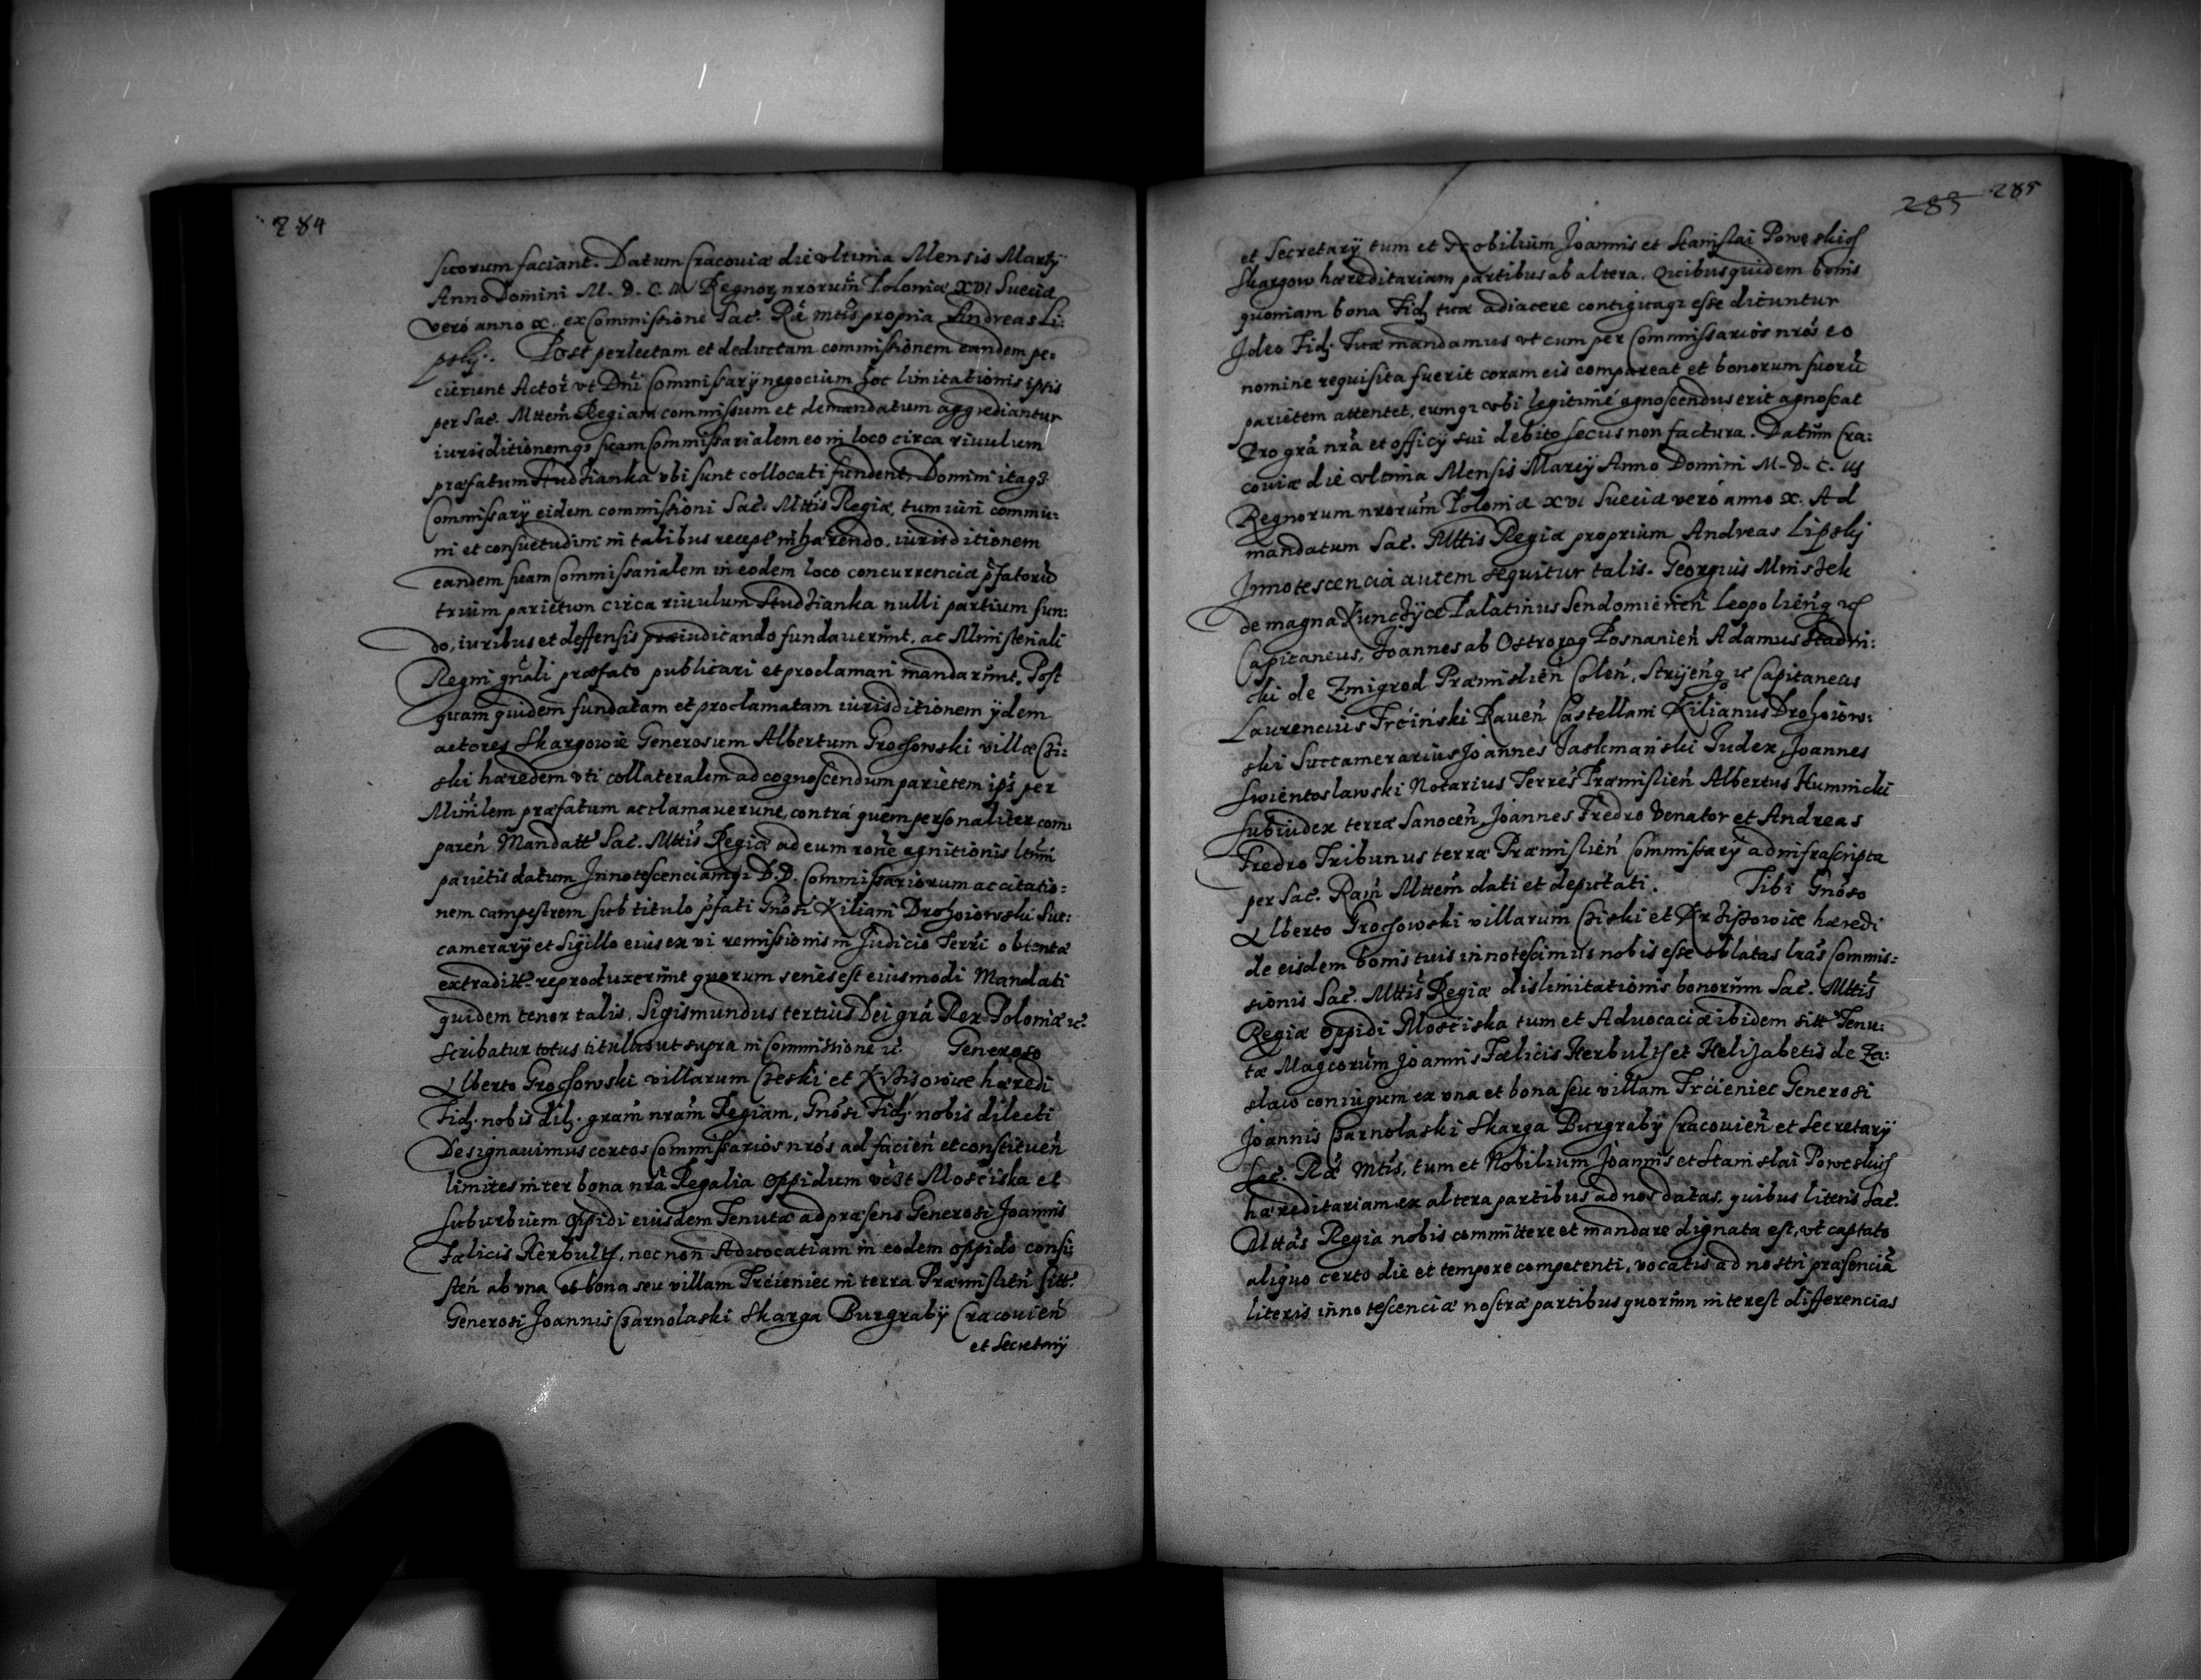 284
suorum faciant. Datum Cracouiæ die vltima Mensis Martÿ
Anno Domini M. D. C. iii Regnorz nrorum̃ Poloniæ XVI Sueciæ
veró anno x. ex Commissione Sac. Ræ mtis propria Andreas Li:
pskÿ. Post perlectam et deductam commissionem eandem pe:
cierunt Actor̃ vt Dni Commissarÿ negocium hoc limitationis ipsis
per Sac. Mttem Regiam commissum et demandatum aggrediantur
iurisditionemqz suam Commissarialem eo in loco circa riuulum
præfatum Studzianka vbi sunt collocati fundent. Domini itaqz
Commissarÿ eidem commissioni Sac. Mttis Regiæ, tum iuri commu:
ni et consuetudini in talibus recept inhærendo. iurisditionem
eandem suam Commissarialem in eodem loco concurrenciæ pfatorũ
trium parietum circa riuulum Studzianka nulli partium fun:
do, iuribus et deffensis præiudicando fundauerunt, ac Ministeriali
Regni gnali præfato publicari et proclamari mandarunt. Post
quam quidem fundatam et proclamatam iurisditionem ÿdem
actores Skargowie Generosum Albertum Grochowski villæ Czi:
ski hæredem vti collateralem ad cognoscendum parietem ips per
Minilem præfatum acclamauerunt, contrá quem personaliter com:
pareñ Mandatt Sac. Mttis Regiæ ad eum rone agnitionis ltmi
parietis datum Innotescenciamqz D.D. Commissariorum ac citatio:
nem campestrem sub titulo pfati Gnosi Kiliani Drohoiowski Suc:
camerarÿ et Sigillo eius ex vi remissionis in Judicio Terri obtentæ
extraditt reproduxerunt quorum series est eiusmodi Mandati
quidem tenor talis. Sigismundus tertius Dei grã Rex Poloniæ &c.
Scribatur totus titulus ut supra in Commissione &c. Generoso
Alberto Grochowski villarum Czeski et Krzisowice hæredi
Fid. nobis dil. gram nram Regiam, Gnosi Fid. nobis dilecti
Designauimus certos Commissarios nros ad facien et constituen
limites inter bona nrã Regalia Oppidum vczt Mościska et
suburbium Oppidi eiusdem Tenutæ ad præsens Generosi Joannis
Fælicis Herbultf, nec non Aduocatiam in eodem oppido consi:
steñ ab vna et bona seu villam Trcieniec in terra Præmislień sitt.
Generosi Joannis Czarnolaski Skarga Burgrabÿ Cracouień
et Secretarÿ
283 285
et Secretarÿ tum et Nobilium Joannis et Stanislai Poweskich
Skargow hæreditariam partibus ab altera. Quibus quidem bonis
quoniam bona Fid tuæ adiacere contiguaqz esse dicuntur
Ideo Fid. Tuæ mandamus vt cum per Commissarios nros eo
nomine requisita fuerit coram eis compareat et bonorum suorũ
parietem attentet, eumqz vbi legitimé agnoscendus erit agnoscat
Pro grã nrã et officÿ sui debito secus non factura. Datum Cra:
couiæ die vltima Mensis Marcÿ Anno Domini M. D. C. iij
Regnorum nrorum Poloniæ XVI Sueciæ veró anno x. Ad
mandatum Sac. Mttis Regiæ proprium Andreas Lipskj
Innotescencia autem sequitur talis. Georgius Mniszek
de magna Kunczÿce Palatinus Sendomirień Leopolieńqz &c
Capitaneus, Joannes ab Ostrorog Posnanień Adamus Stadni:
cki de Zmigrod Præmislień Coleń, Strijeńqz &c Capitaneus
Laurencius Trciński Raueń Castellani Kilianus Drohoiow:
ski Succamerarius Joannes Jaskmański Judex, Joannes
Swientoslawski Notarius Terres Præmislień Albertus Humnicki
Subiudex terræ Sanoceñ, Joannes Fredro Venator et Andreas
Fredro Tribunus terræ Præmislień Commissarÿ ad infrascripta
per Sac. Ram Mttem dati et deputati. Tibi Gnoso
Alberto Grochowski villarum Cziski et Krzissowice hæredi
de eisdem bonis tuis innotescimus nobis esse oblatas lras Commis:
sionis Sac. Mttis Regiæ dislimitationis bonorum Sac. Mttis
Regiæ Oppidi Mościska tum et Aduocaciæ ibidem sitt Tenu:
tæ Magcorum Joannis Fælicis Herbultf et Helizabetis de Za:
slaw coniugum ex vna et bona seu villam Trcieniec Generosi
Joannis Czarnolaski Skarga Burgrabÿ Cracouień et Secretarÿ
Sac. Ræ Mtis, tum et Nobilium Joannis et Stanislai Poweskich
hæreditariam ex altera partibus ad nos datas, quibus literis Sac.
Mttas Regia nobis committere et mandare dignata est, vt captato
aliquo certo die et tempore competenti, vocatis ad nostri præsenciã
literis innotescenciæ nostræ partibus quorum interest differencias